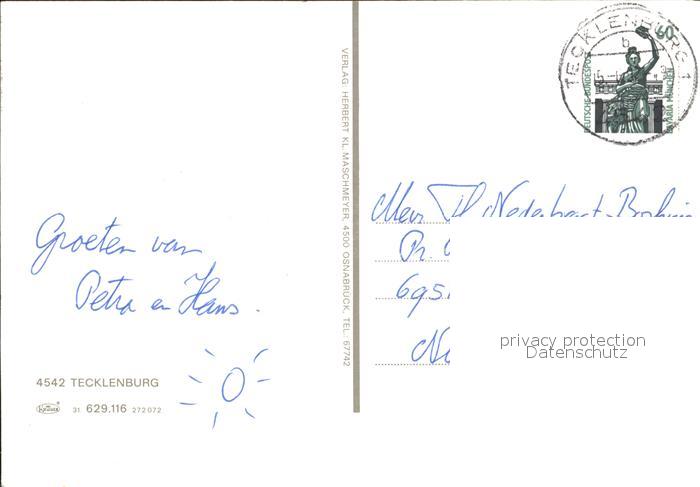 Groeten van
Petra en Hans.
4542 TECKLENBURG
31 629.116 272 072
VERLAG: HERBERT KL. MASCHMEYER, 4500 OSNABRÜCK, TEL. 67742
TECKLENBURG 1
b
60
DEUTSCHE BUNDESPOST
BAVARIA MÜNCHEN
Mevr.
Pr.
695
privacy protection
Datenschutz